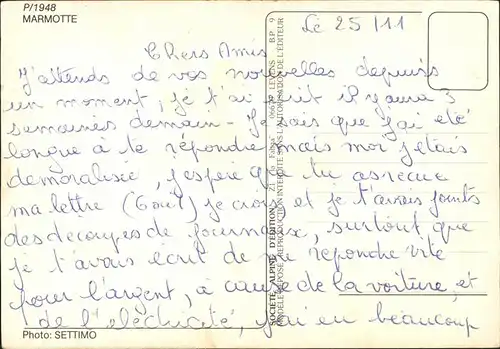 P/1948
MARMOTTE
Le 25/11
Chers Amis
J'attends de vos nouvelles depuis
un moment, je t'ai écrit il y aura 3
semaines demain - Je sais que j'ai été
longue à te répondre mais moi j'étais
démoralisée, j'espère que tu as reçue
ma lettre je crois et je t'avais joints
des découpes de journaux, surtout que
je t'avais écrit de me répondre vite
pour l'argent, à cause de la voiture, et
de l'eléctricité, j'ai eu beaucoup
Photo: SETTIMO
SOCIÉTÉ ALPINE D'ÉDITION Z.I. 06670 LEVENS B.P. 9
REPRODUCTION INTERDITE SANS L'AUTORISATION DE L'ÉDITEUR